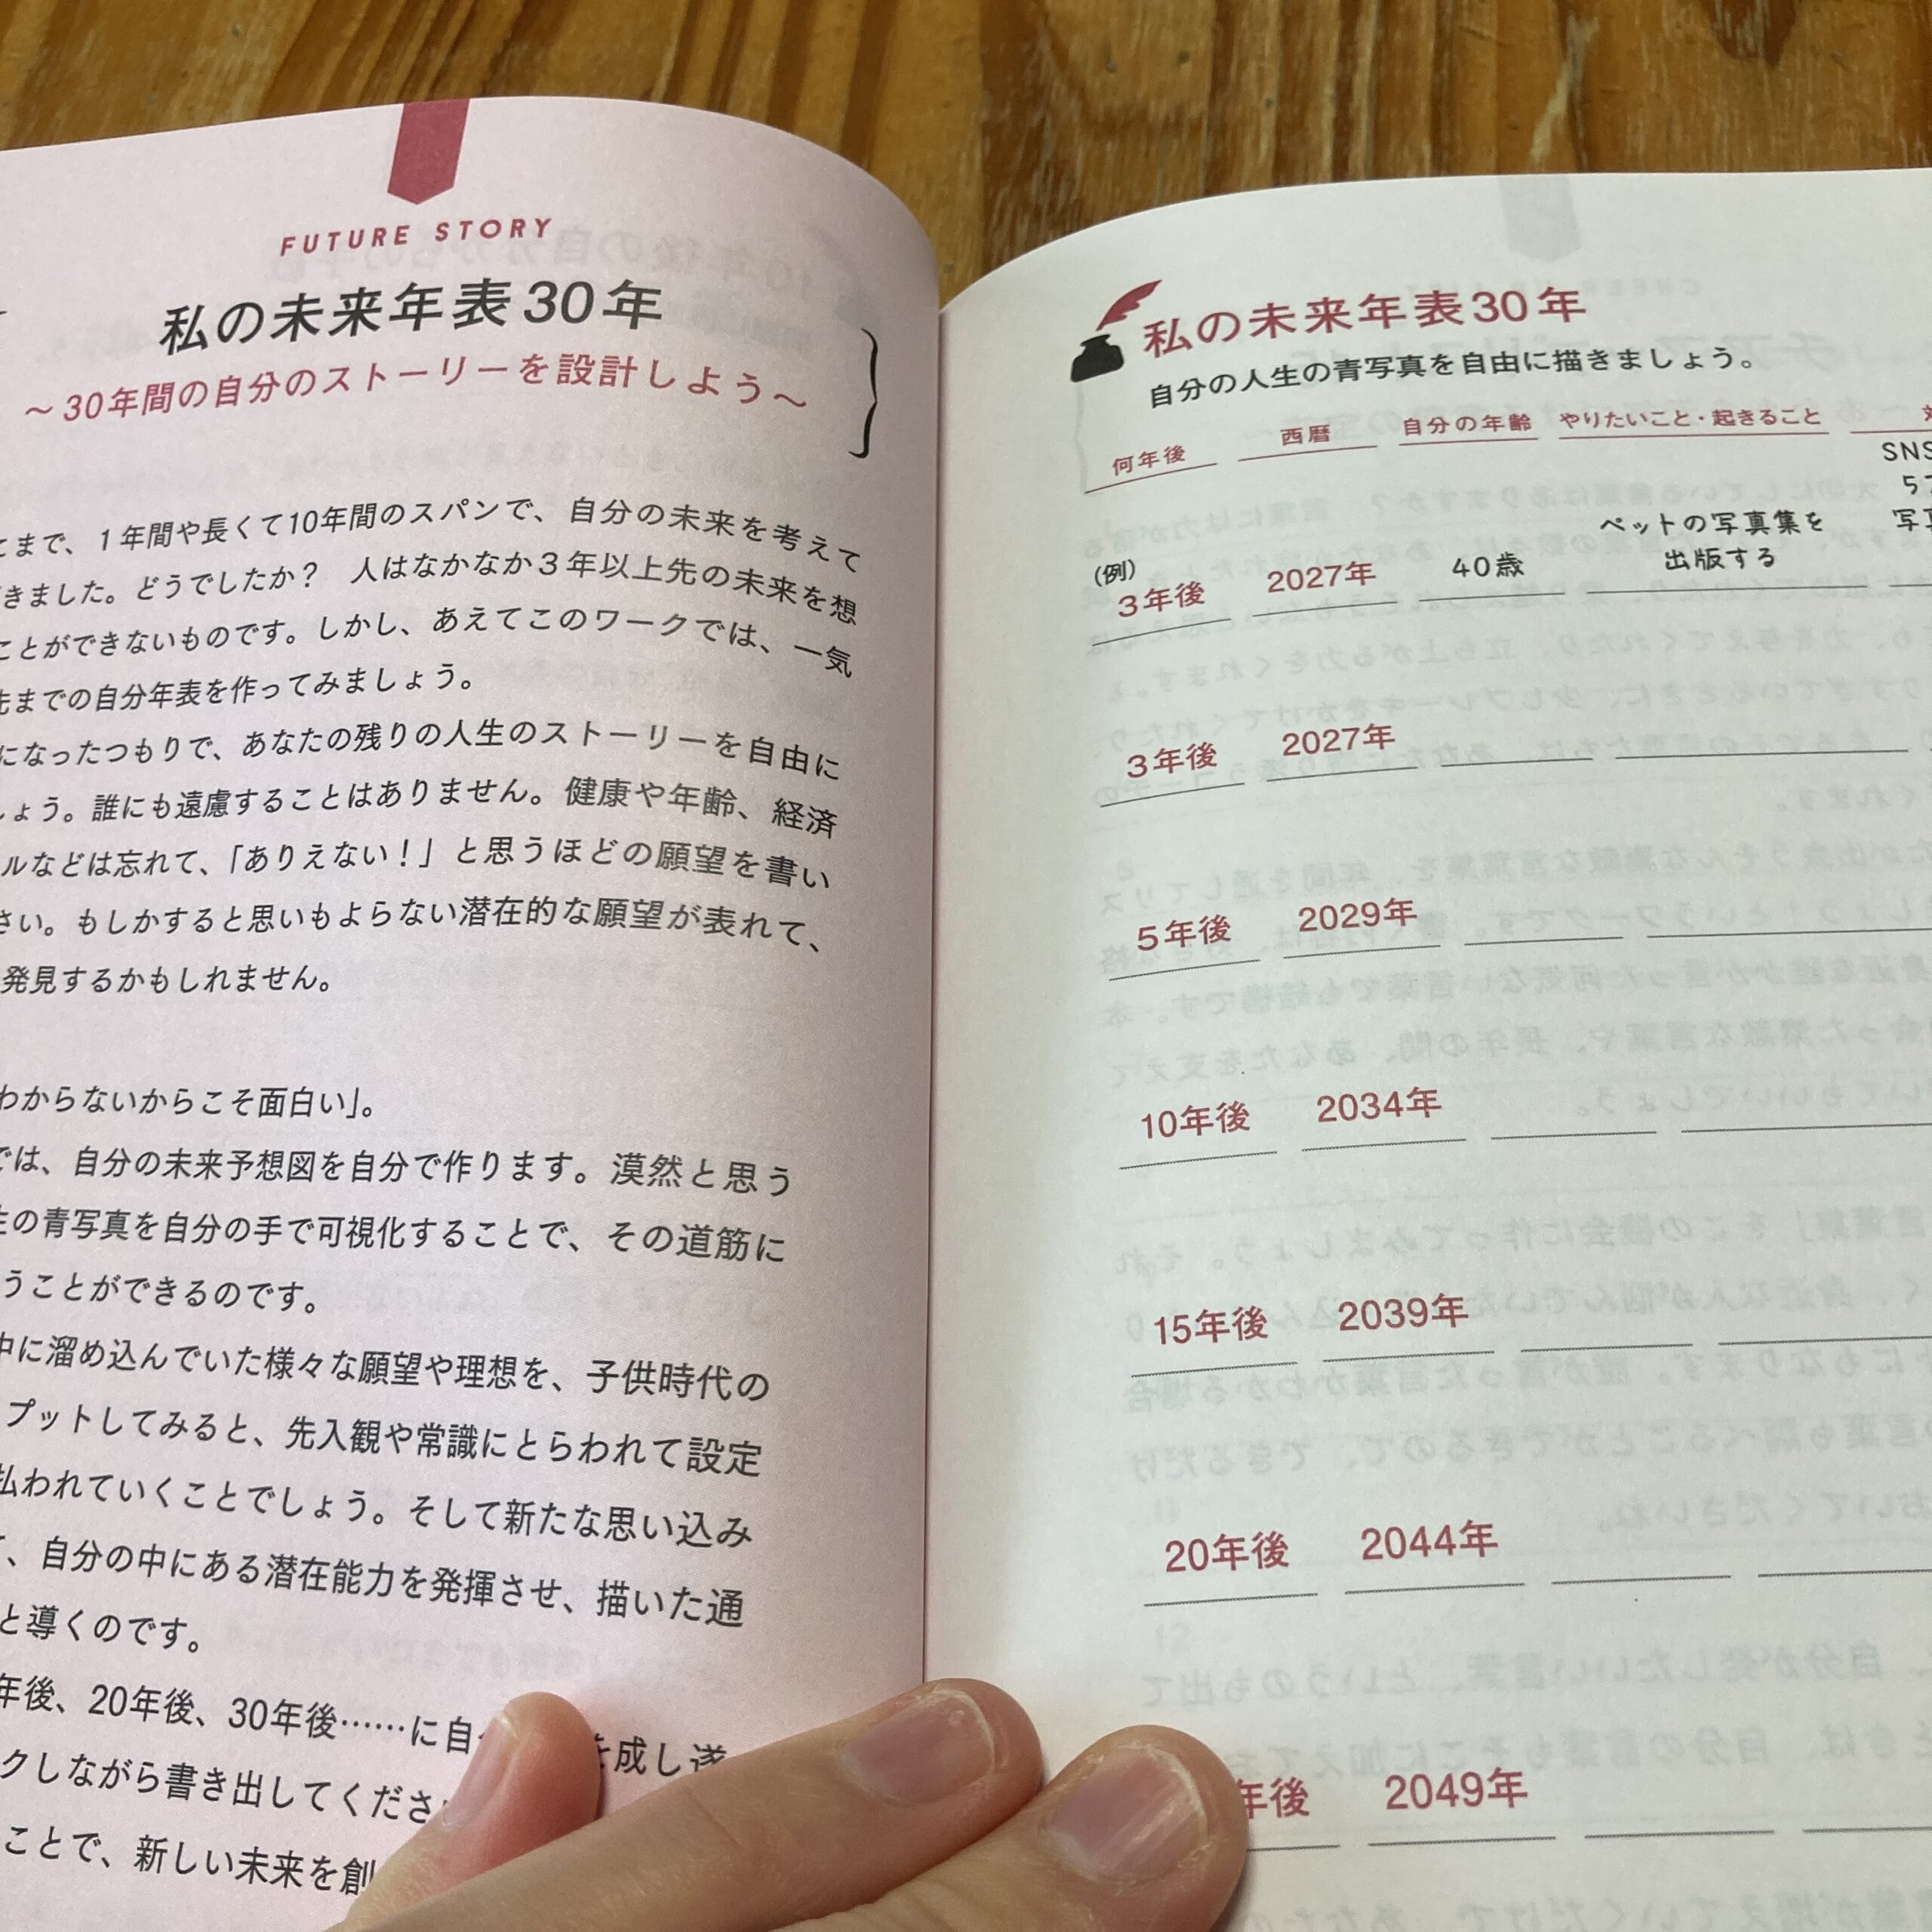 FUTURE STORY
私の未来年表30年
～30年間の自分のストーリーを設計しよう～
まで、1年間や長くて10年間のスパンで、自分の未来を考えて
きました。どうでしたか？　人はなかなか3年以上先の未来を想
ことができないものです。しかし、あえてこのワークでは、一気
までの自分年表を作ってみましょう。
になったつもりで、あなたの残りの人生のストーリーを自由に
しょう。誰にも遠慮することはありません。健康や年齢、経済
ルなどは忘れて、「ありえない！」と思うほどの願望を書い
さい。もしかすると思いもよらない潜在的な願望が表れて、
発見するかもしれません。
わからないからこそ面白い」。
では、自分の未来予想図を自分で作ります。漠然と思う
生の青写真を自分の手で可視化することで、その道筋に
うことができるのです。
中に溜め込んでいた様々な願望や理想を、子供時代の
プットしてみると、先入観や常識にとらわれて設定
払われていくことでしょう。そして新たな思い込み
、自分の中にある潜在能力を発揮させ、描いた通
と導くのです。
年後、20年後、30年後……に自
を成し遂
クしながら書き出してくださ
ことで、新しい未来を創
私の未来年表30年
自分の人生の青写真を自由に描きましょう。
何年後 西暦 自分の年齢 やりたいこと・起きること
SNS
ペットの写真集を 写真
(例) 3年後 2027年 40歳 出版する
3年後 2027年
5年後 2029年
10年後 2034年
15年後 2039年
20年後 2044年
年後 2049年